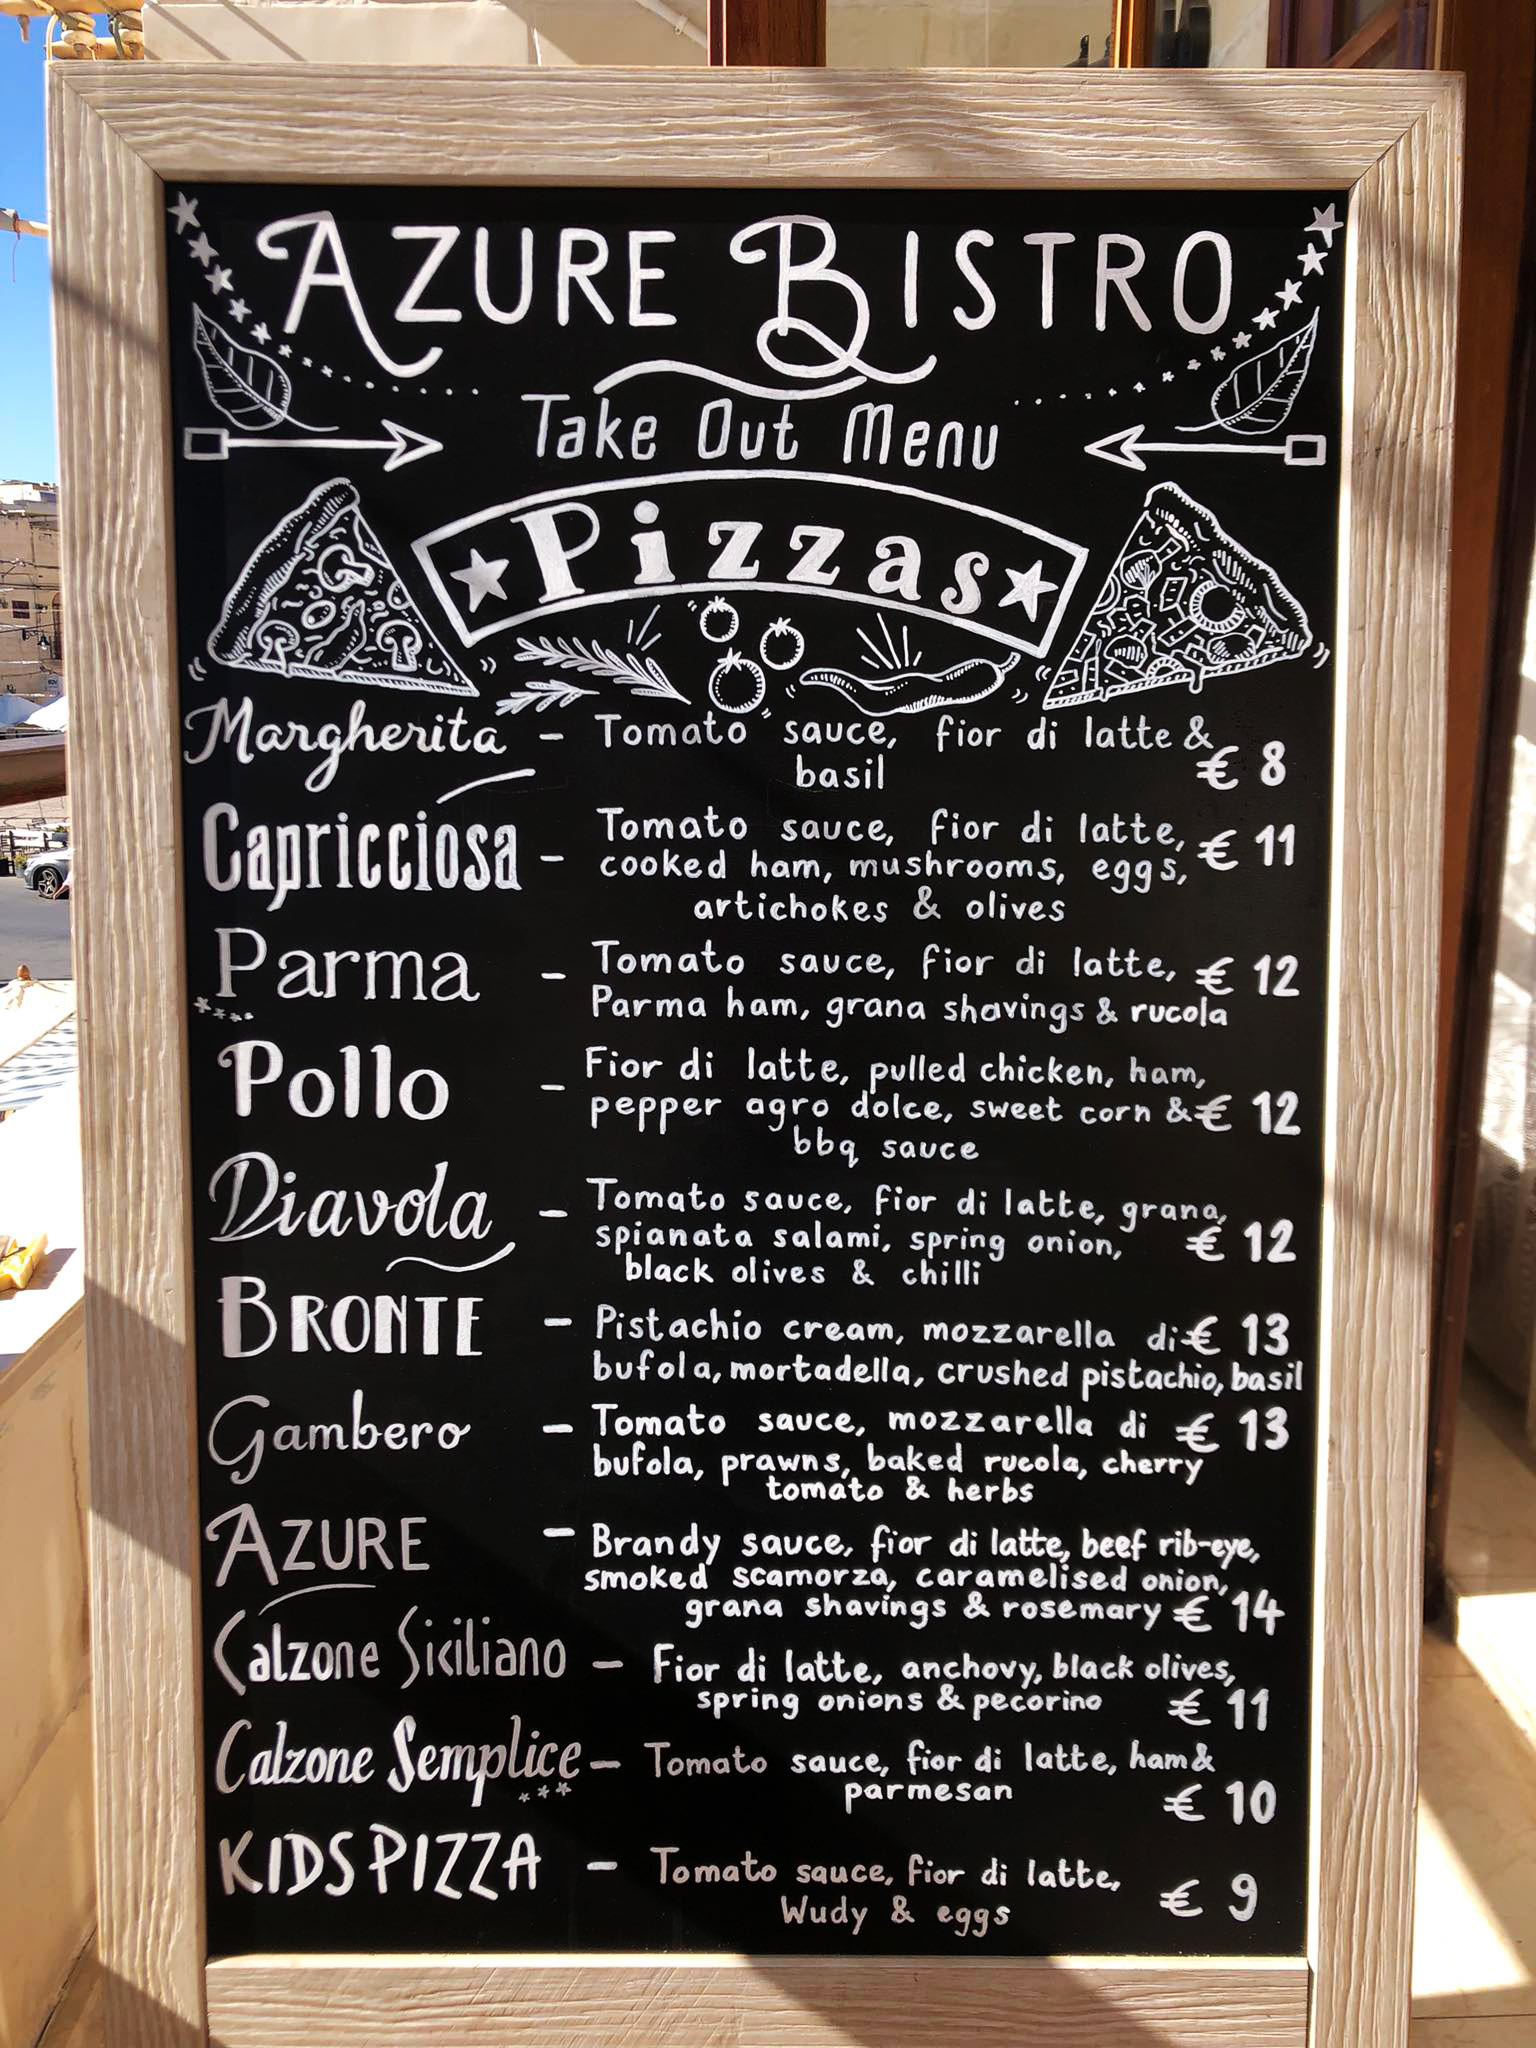 AZURE BISTRO
Take Out Menu
Pizzas
Margherita - Tomato sauce, fior di latte &
basil € 8
Capricciosa - Tomato sauce, fior di latte, € 11
cooked ham, mushrooms, eggs,
artichokes & olives
Parma - Tomato sauce, fior di latte, € 12
Parma ham, grana shavings & rucola
Pollo - Fior di latte, pulled chicken, ham,
pepper agro dolce, sweet corn & € 12
bbq sauce
Diavola - Tomato sauce, fior di latte, grana,
spianata salami, spring onion, € 12
black olives & chilli
BRONTE - Pistachio cream, mozzarella di € 13
bufola, mortadella, crushed pistachio, basil
Gambero - Tomato sauce, mozzarella di € 13
bufola, prawns, baked rucola, cherry
tomato & herbs
AZURE - Brandy sauce, fior di latte, beef rib-eye,
smoked scamorza, caramelised onion,
grana shavings & rosemary € 14
Calzone Siciliano - Fior di latte, anchovy, black olives,
spring onions & pecorino € 11
Calzone Semplice - Tomato sauce, fior di latte, ham &
parmesan € 10
KIDS PIZZA - Tomato sauce, fior di latte,
Wudy & eggs € 9